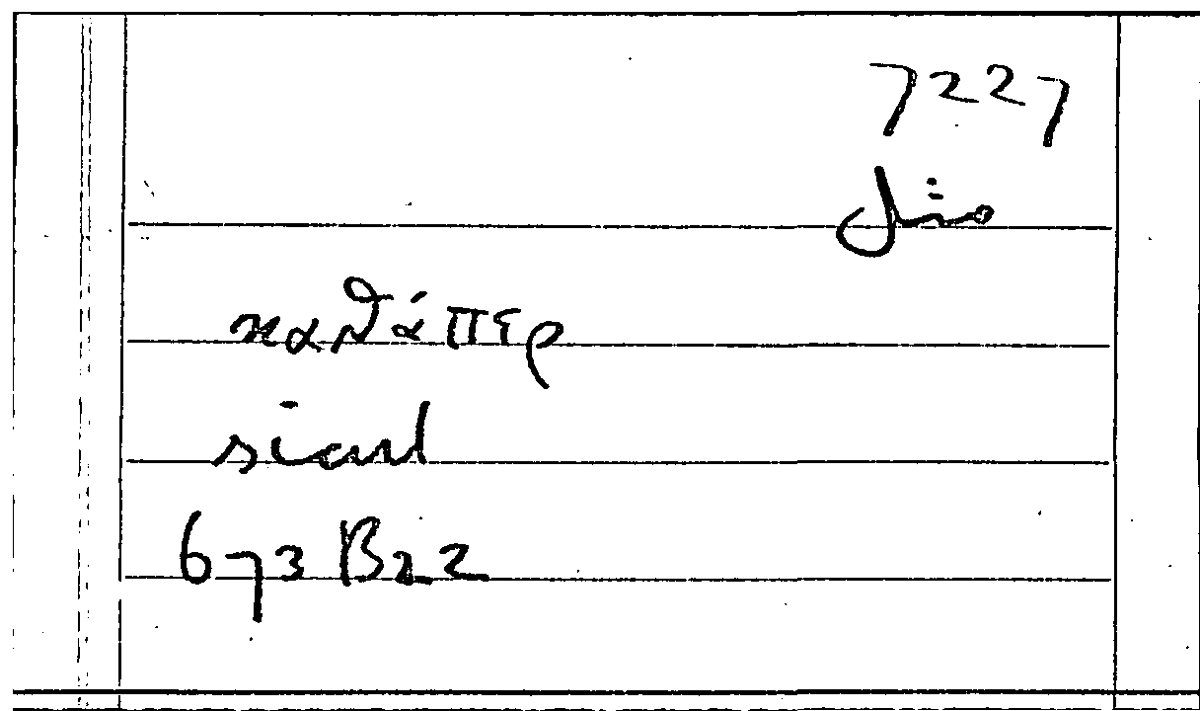 7227
καθάπερ
sicut
673 B22